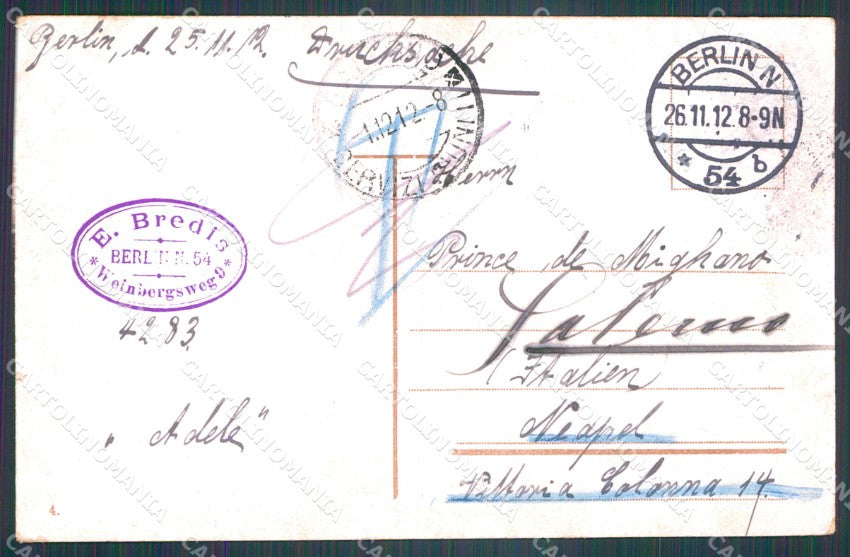 Berlin, d. 25.11.12. Drucksache
BERLIN N
26.11.12.8-9N
* 54 b
1.12.12-8
SERVIZI
Herrn
E. Bredis
BERLIN N. 54
* Weinbergsweg 9 *
Prince de Mighano
Salerno
(Italien
4283.
Neapel
„Adele"
Vittoria Colonna 14.
4.
CARTOLINOMANIA